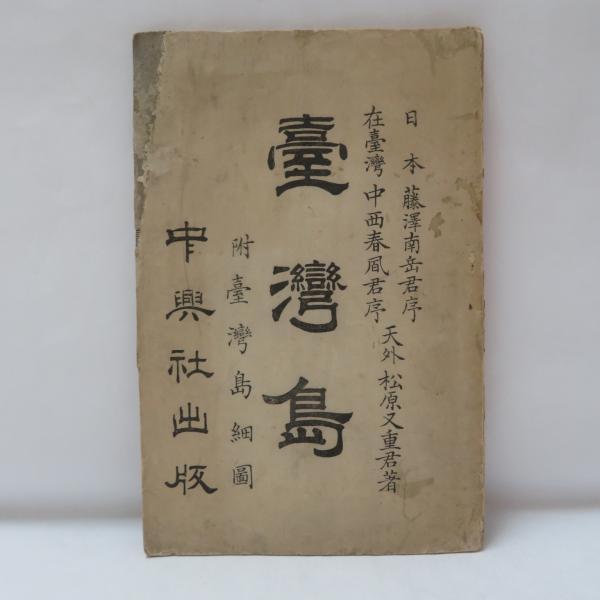 日本 藤澤南岳君序
在臺灣 中西春凬君序
天外 松原又重君著
臺灣島
附臺灣島細圖
中興社出版